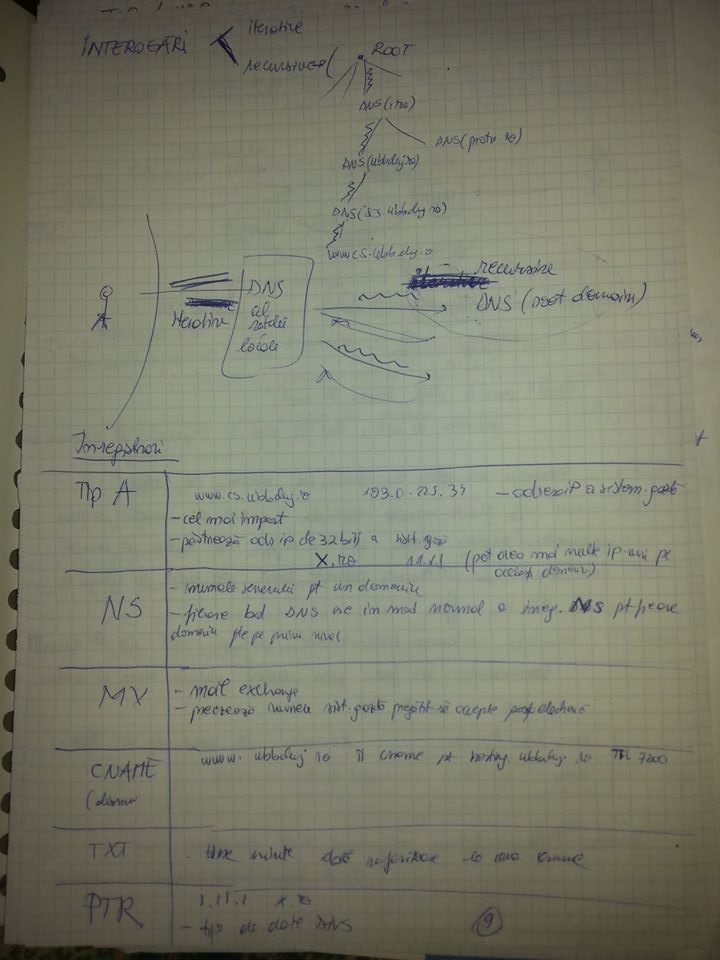 INTEROGĂRI
iterative
recursive
ROOT
DNS(.ro)
DNS(protv.ro)
DNS(ubbcluj.ro)
DNS(cs.ubbcluj.ro)
www.cs.ubbcluj.ro
iterative
DNS
al
rețelei
locale
recursive
DNS (root domain)
Înregistrări
Tip A
www.cs.ubbcluj.ro 193.0.225.34 - adresa IP a sistem. gazdă
- cel mai import
- păstrează adr ip de 32 biți a sist. gazdă
X.ro 1.1.1.1 (pot avea mai multe ip-uri pe
același domeniu)
NS
- numele serverului pt un domeniu
- fiecare bd DNS are în mod normal o înreg. NS pt fiecare
domeniu de pe primu nivel
MX
- mail exchange
- precizează numele sist. gazdă pregătit să accepte poșta electronică
CNAME
www.ubbcluj.ro îi cname pt hosting.ubbcluj.ro TTL 7200
TXT
- date referitoare la
PTR
1.1.1.1 x.ro
- tip de date DNS
9